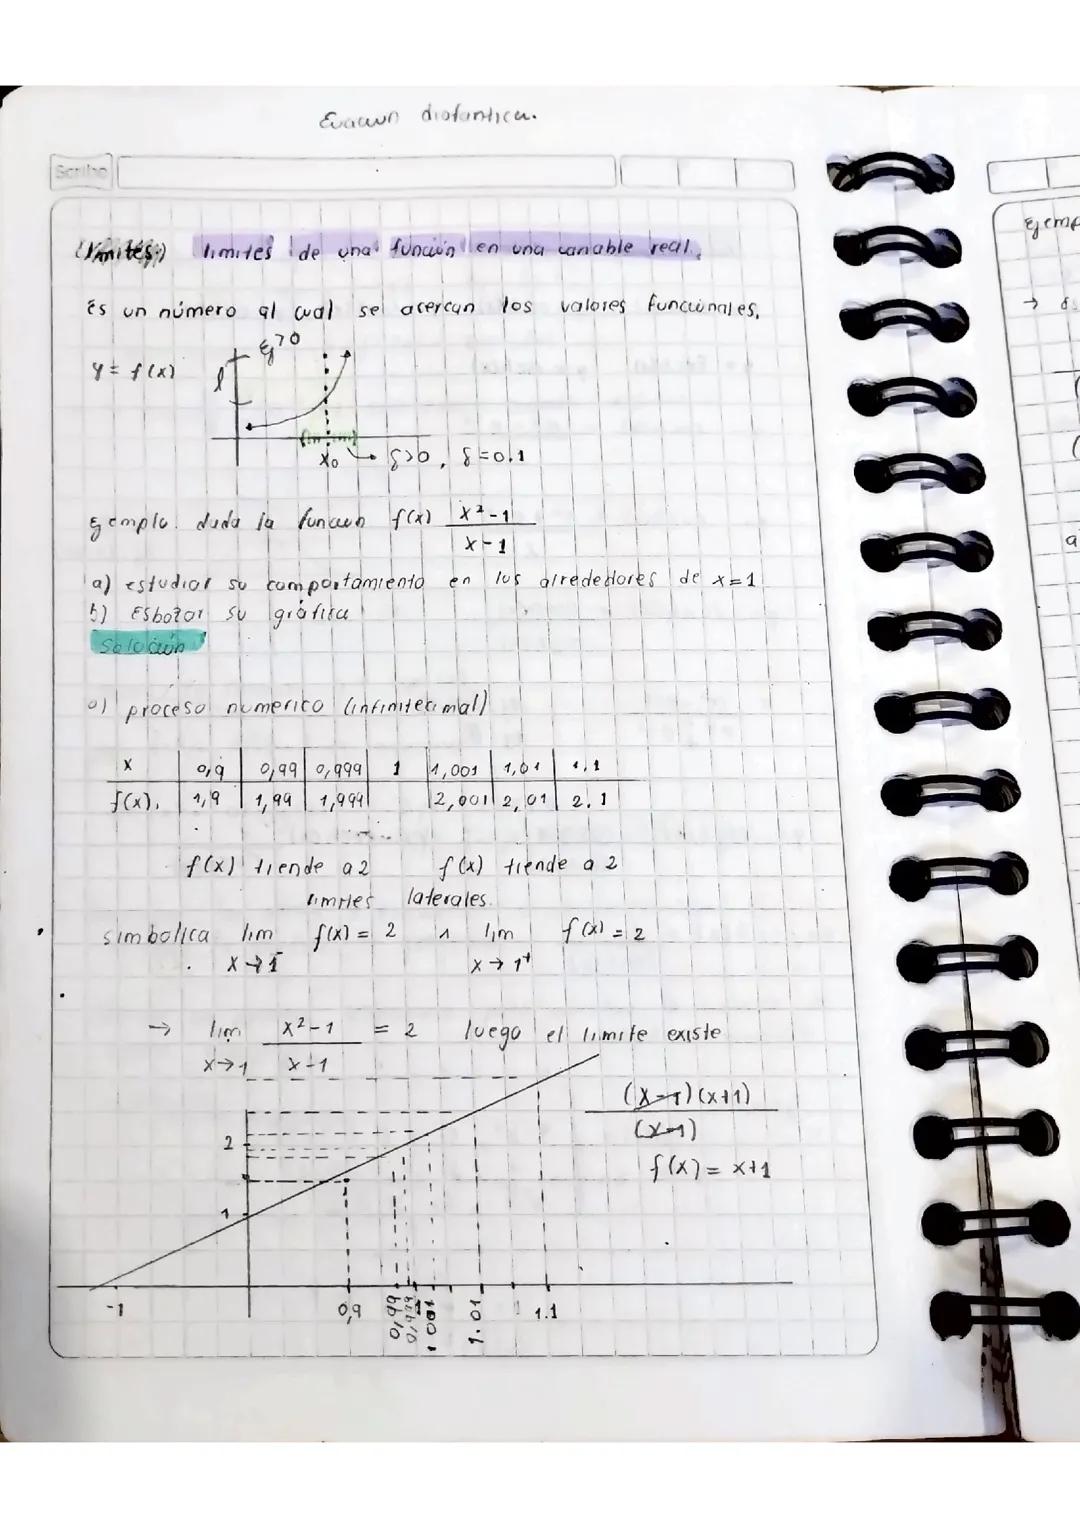 Scribe
limites de una función en una variable real.
Es un número al cual se acercan los valores funcionales.
y = f(x) l ξ>0
x₀ → δ>0, δ=0.1
Ejemplo. dada la funcion f(x) x²-1
x-1
a) estudiar su comportamiento en los alrededores de x=1
b) Esbozar su gráfica
Solución
a) proceso numerico (infinitecimal)
x 0,9 0,99 0,999 1 1,001 1,01 1,1
f(x). 1,9 1,99 1,999 2,001 2,01 2.1
f(x) tiende a 2 f(x) tiende a 2
limites laterales.
simbolica lim f(x) = 2 ∧ lim f(x) = 2
x→1⁻ x→1⁺
→ lim x²-1 = 2 luego el limite existe
x→1 x-1
(x-1)(x+1)
(x-1)
2
f(x) = x+1
1
-1 0,9 0,99 0,999 1 1.001 1.01 1.1
Ejemp
→
a